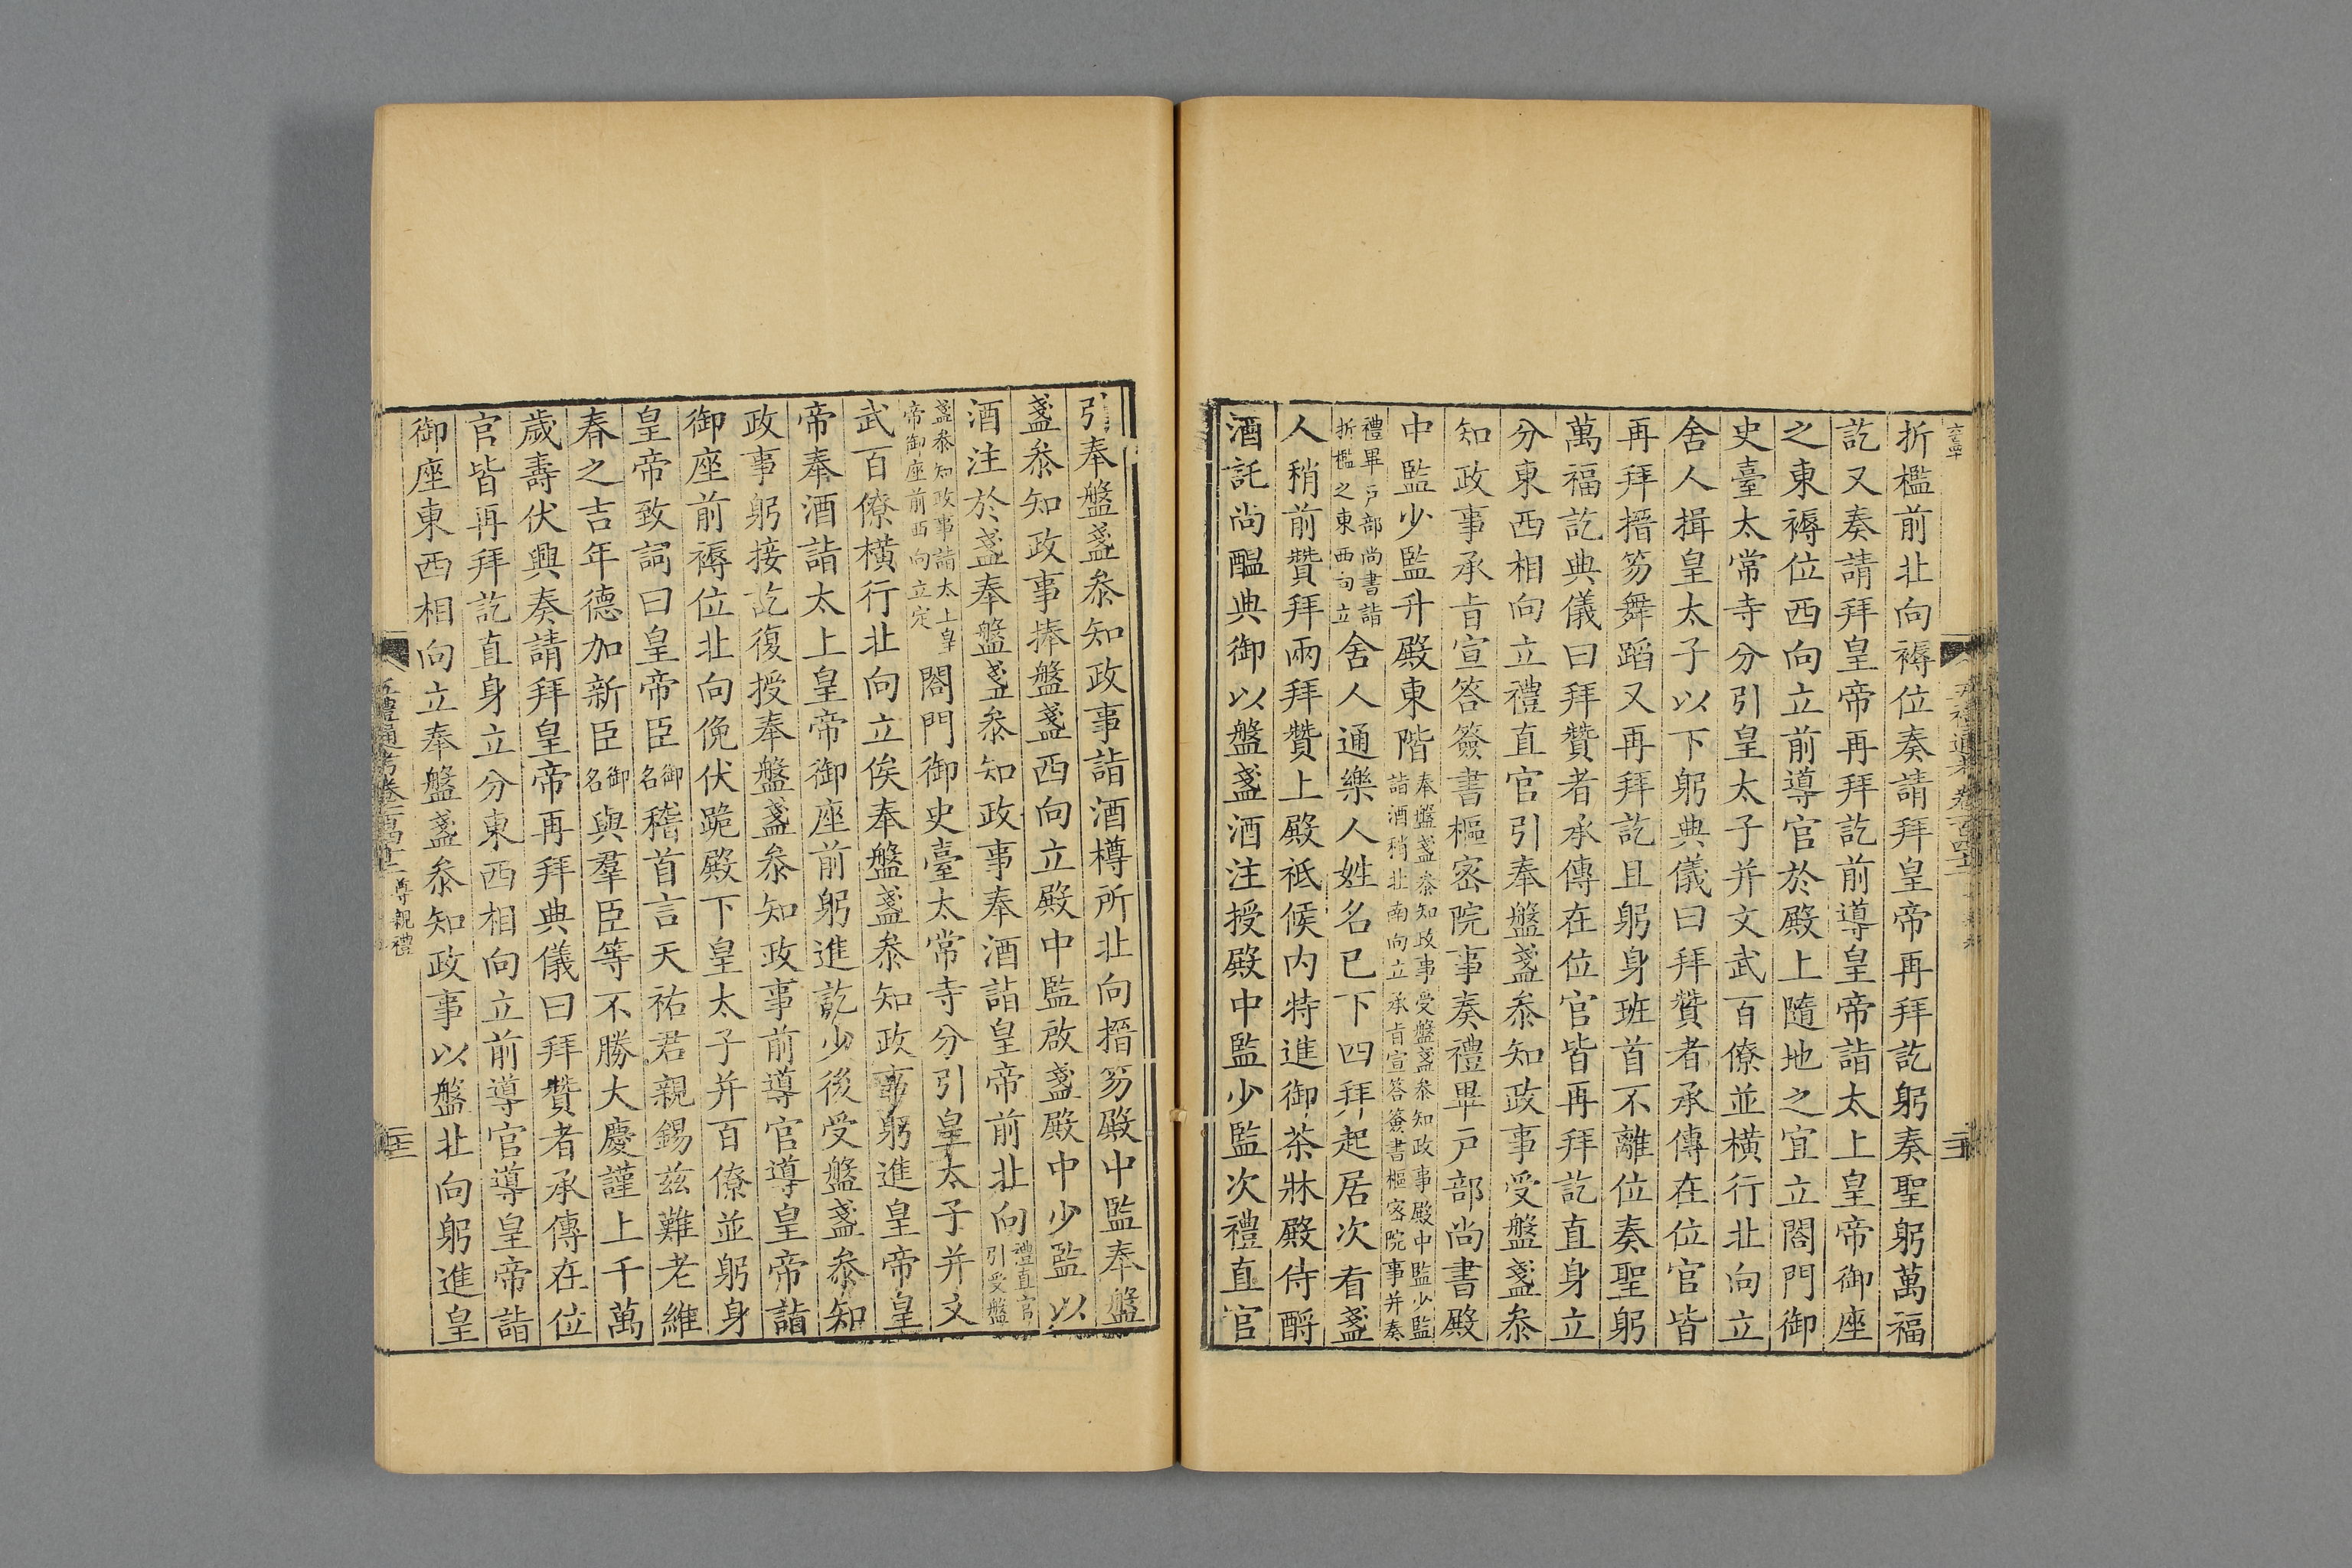 折檻前北向褥位奏請拜皇帝再拜訖躬奏聖躬萬福
訖又奏請拜皇帝再拜訖前導皇帝詣太上皇帝御座
之東褥位西向立前導官於殿上隨地之宜立閤門御
史臺太常寺分引皇太子并文武百僚並橫行北向立
舍人揖皇太子以下躬典儀曰拜贊者承傳在位官皆
再拜搢笏舞蹈又再拜訖且躬身班首不離位奏聖躬
萬福訖典儀曰拜贊者承傳在位官皆再拜訖直身立
分東西相向立禮直官引奉盤盞叅知政事受盤盞叅
知政事承㫖宣答簽書樞密院事奏禮畢戸部尚書殿
中監少監升殿東階奉盤盞叅知政事受盤盞叅知政事殿中監少監
詣酒稍北南向立承㫖宣答簽書樞密院事并奏
禮畢戸部尚書詣
折檻之東西向立舍人通樂人姓名已下四拜起居次看盞
人稍前贊拜兩拜贊上殿祗候内特進御茶牀殿侍酹
酒託尚醖典御以盤盞酒注授殿中監少監次禮直官
引奉盤盞叅知政事詣酒樽所北向搢笏殿中監奉盤
盞叅知政事捧盤盞西向立殿中監啟盞殿中少監以
酒注於盞奉盤盞叅知政事奉酒詣皇帝前北向禮直官
引受盤
盞叅知政事詣太上皇
帝御座前西向立定閤門御史臺太常寺分引皇太子并文
武百僚橫行北向立俟奉盤盞叅知政事躬進皇帝皇
帝奉酒詣太上皇帝御座前躬進訖少後受盤盞叅知
政事躬接訖復授奉盤盞叅知政事前導官導皇帝詣
御座前褥位北向俛伏跪殿下皇太子并百僚並躬身
皇帝致詞曰皇帝臣御名稽首言天祐君親錫兹難老維
春之吉年德加新臣御名與羣臣等不勝大慶謹上千萬
歲壽伏興奏請拜皇帝再拜典儀曰拜贊者承傳在位
官皆再拜訖直身立分東西相向立前導官導皇帝詣
御座東西相向立奉盤盞叅知政事以盤北向躬進皇
尊親禮